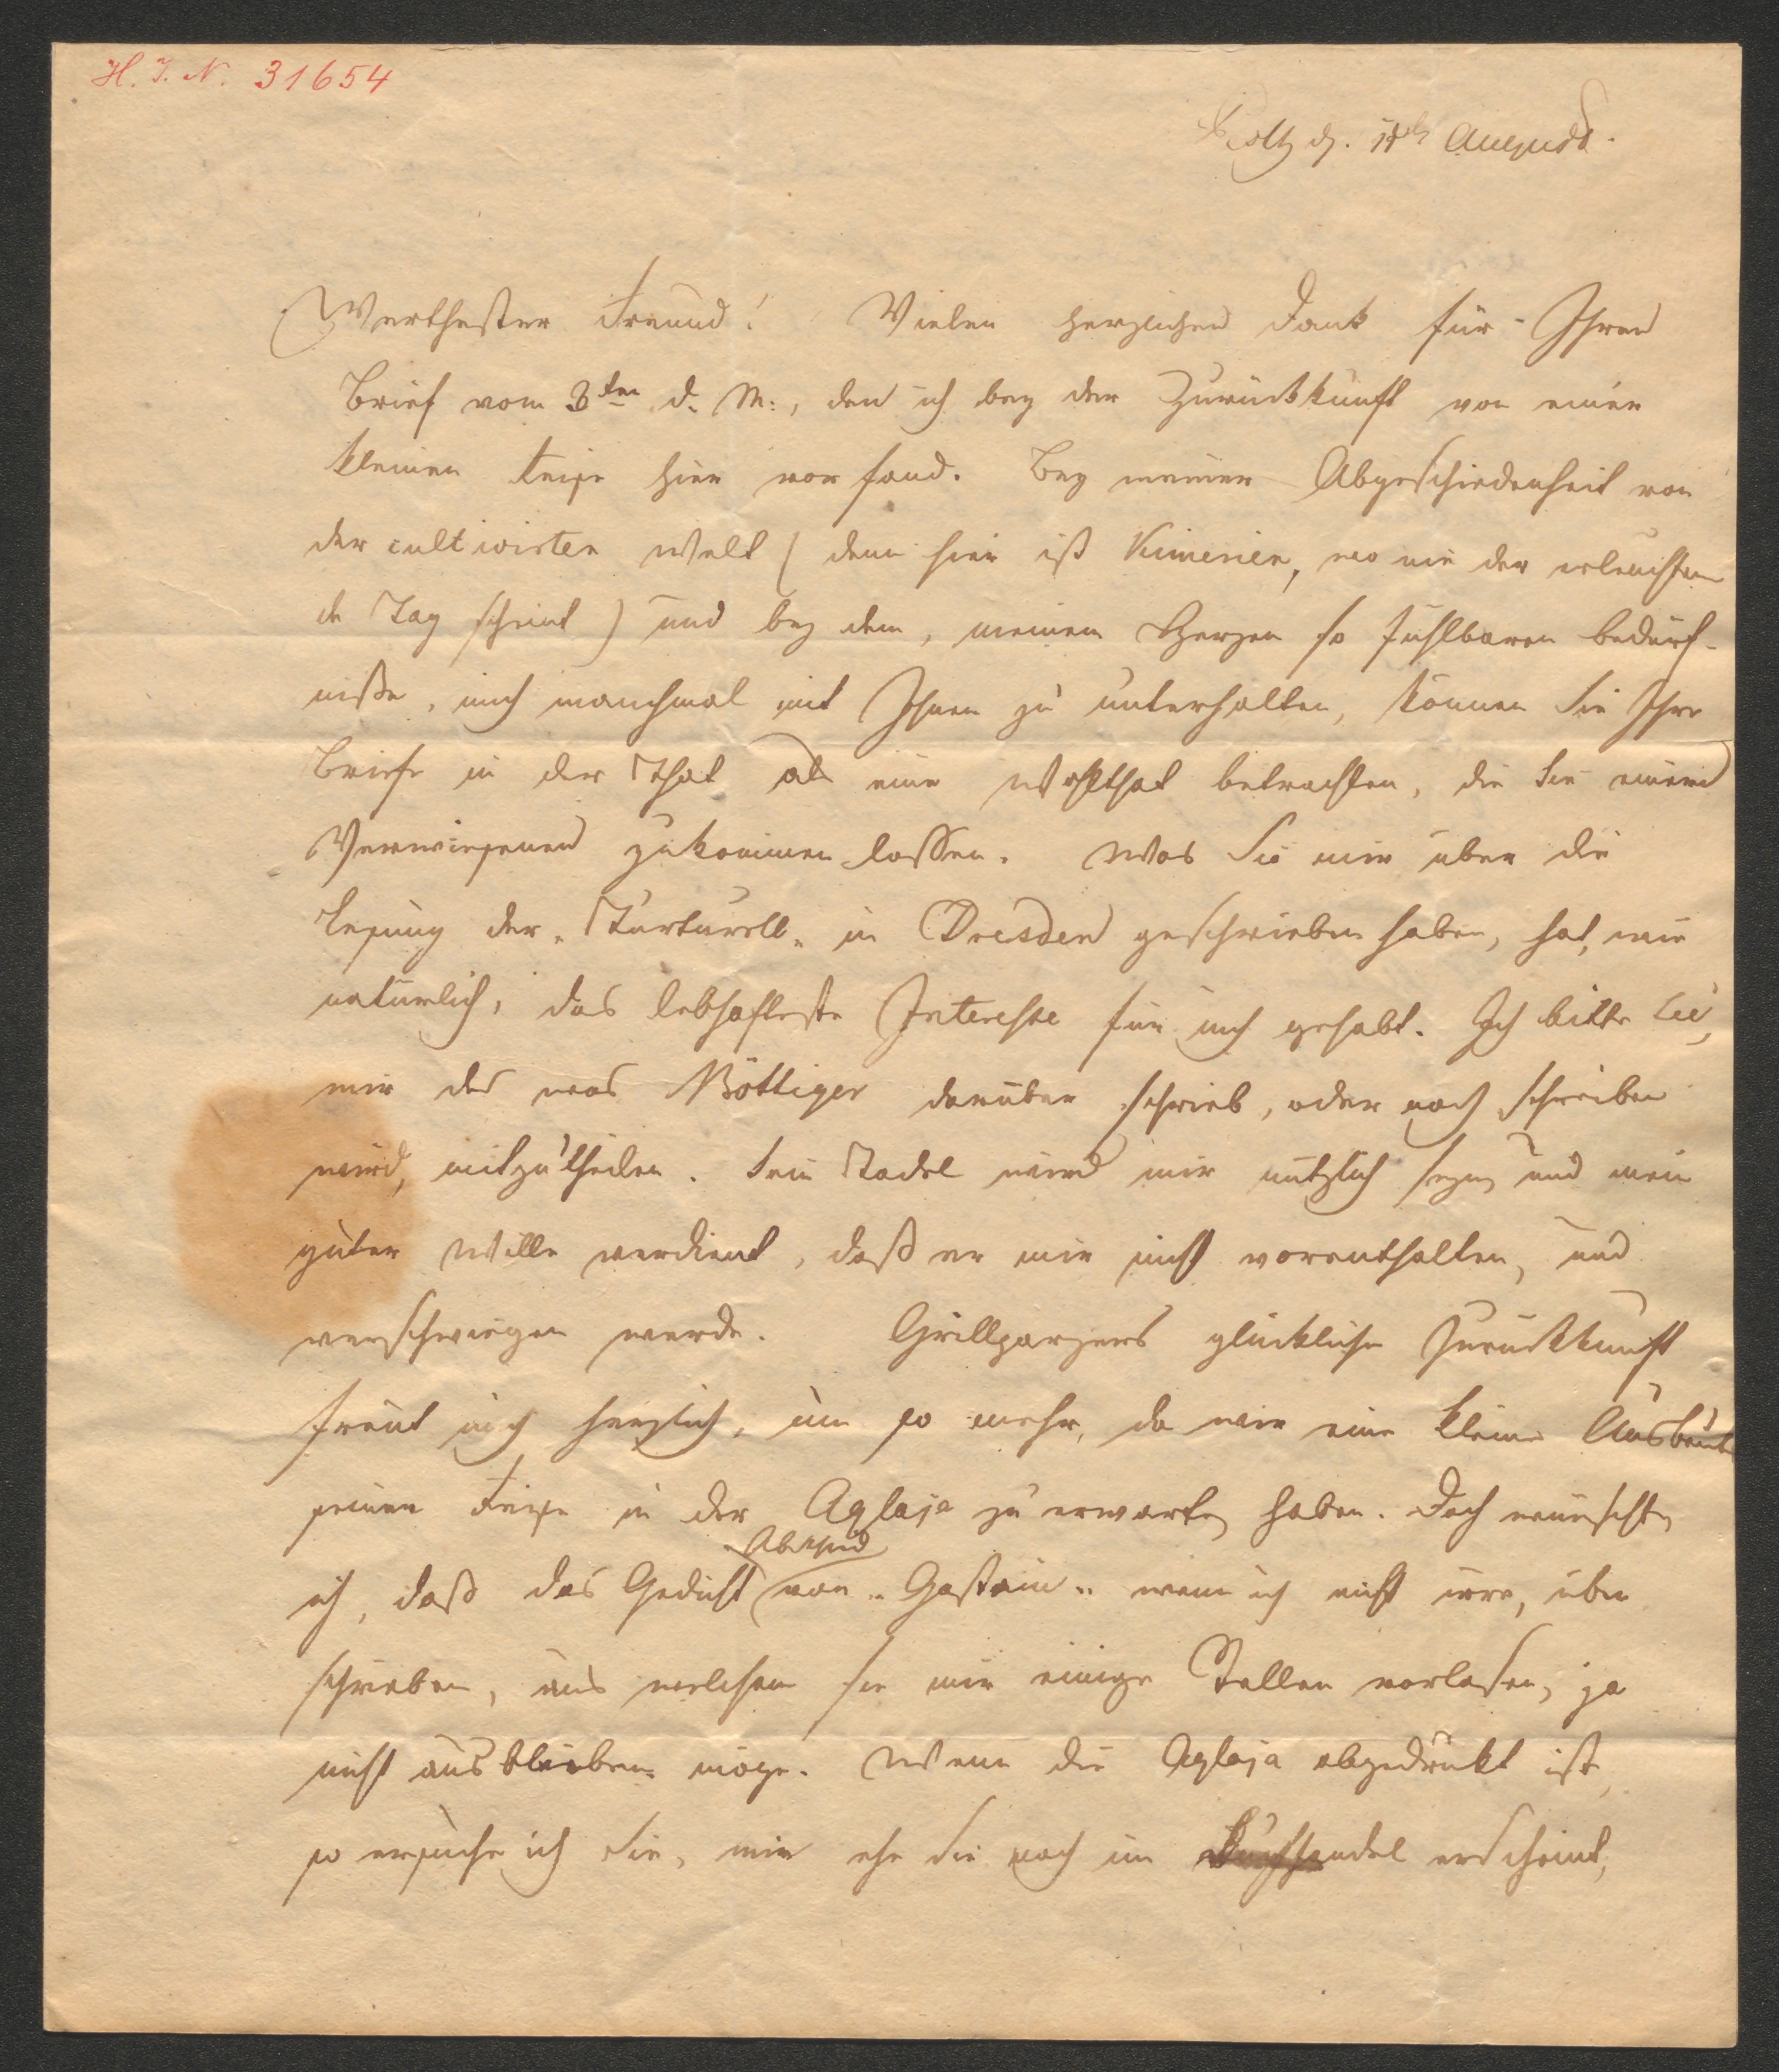 H. I. N. 31654
d. August.
Werthester Freund! Vielen herzlichen Dank für Ihren
Brief vom 3ten d. M:, den ich bey der Zurückkunft von einer
kleinen Reise hier vor fand. Bey meiner Abgeschiedenheit von
der cultivirten Welt (denn hier ist Kimerien, wo nie der erleuchten
de Tag scheint) und bey dem, meinem Herzen so fühlbaren Bedürf-
niße, mich manchmal mit Ihnen zu unterhalten, können Sie Ihre
Briefe in der That als eine Wohlthat betrachten, die Sie einem
Verwiesenen zukommen lassen. Was Sie mir über die
Lesung der „Turturell„ in Dresden geschrieben haben, hat, wie
natürlich, das lebhafteste Interesse für mich gehabt. Ich bitte Sie,
mir das was Böttiger darüber schrieb, oder noch schreiben
wird, mitzutheilen. Sein Tadel wird mir nützlich seyn und mein
guter Wille verdient, daß er mir nicht vorenthalten, und
verschwiegen werde. Grillparzers glückliche Zurückkunft
freut mich herzlich, um so mehr, da wir eine kleine Ausbeute
seiner Reise in der Aglaja zu erwarten haben. Doch wünschte
ich, daß das Gedicht von „Gastein„ wenn ich nicht irre, über
schrieben, aus welchem sie mir einige Stellen vorlasen, ja
nicht ausbleiben möge. Wenn die Aglaja abgedruckt ist,
so ersuche ich Sie, mir ehe sie noch im Buchhandel erscheint,